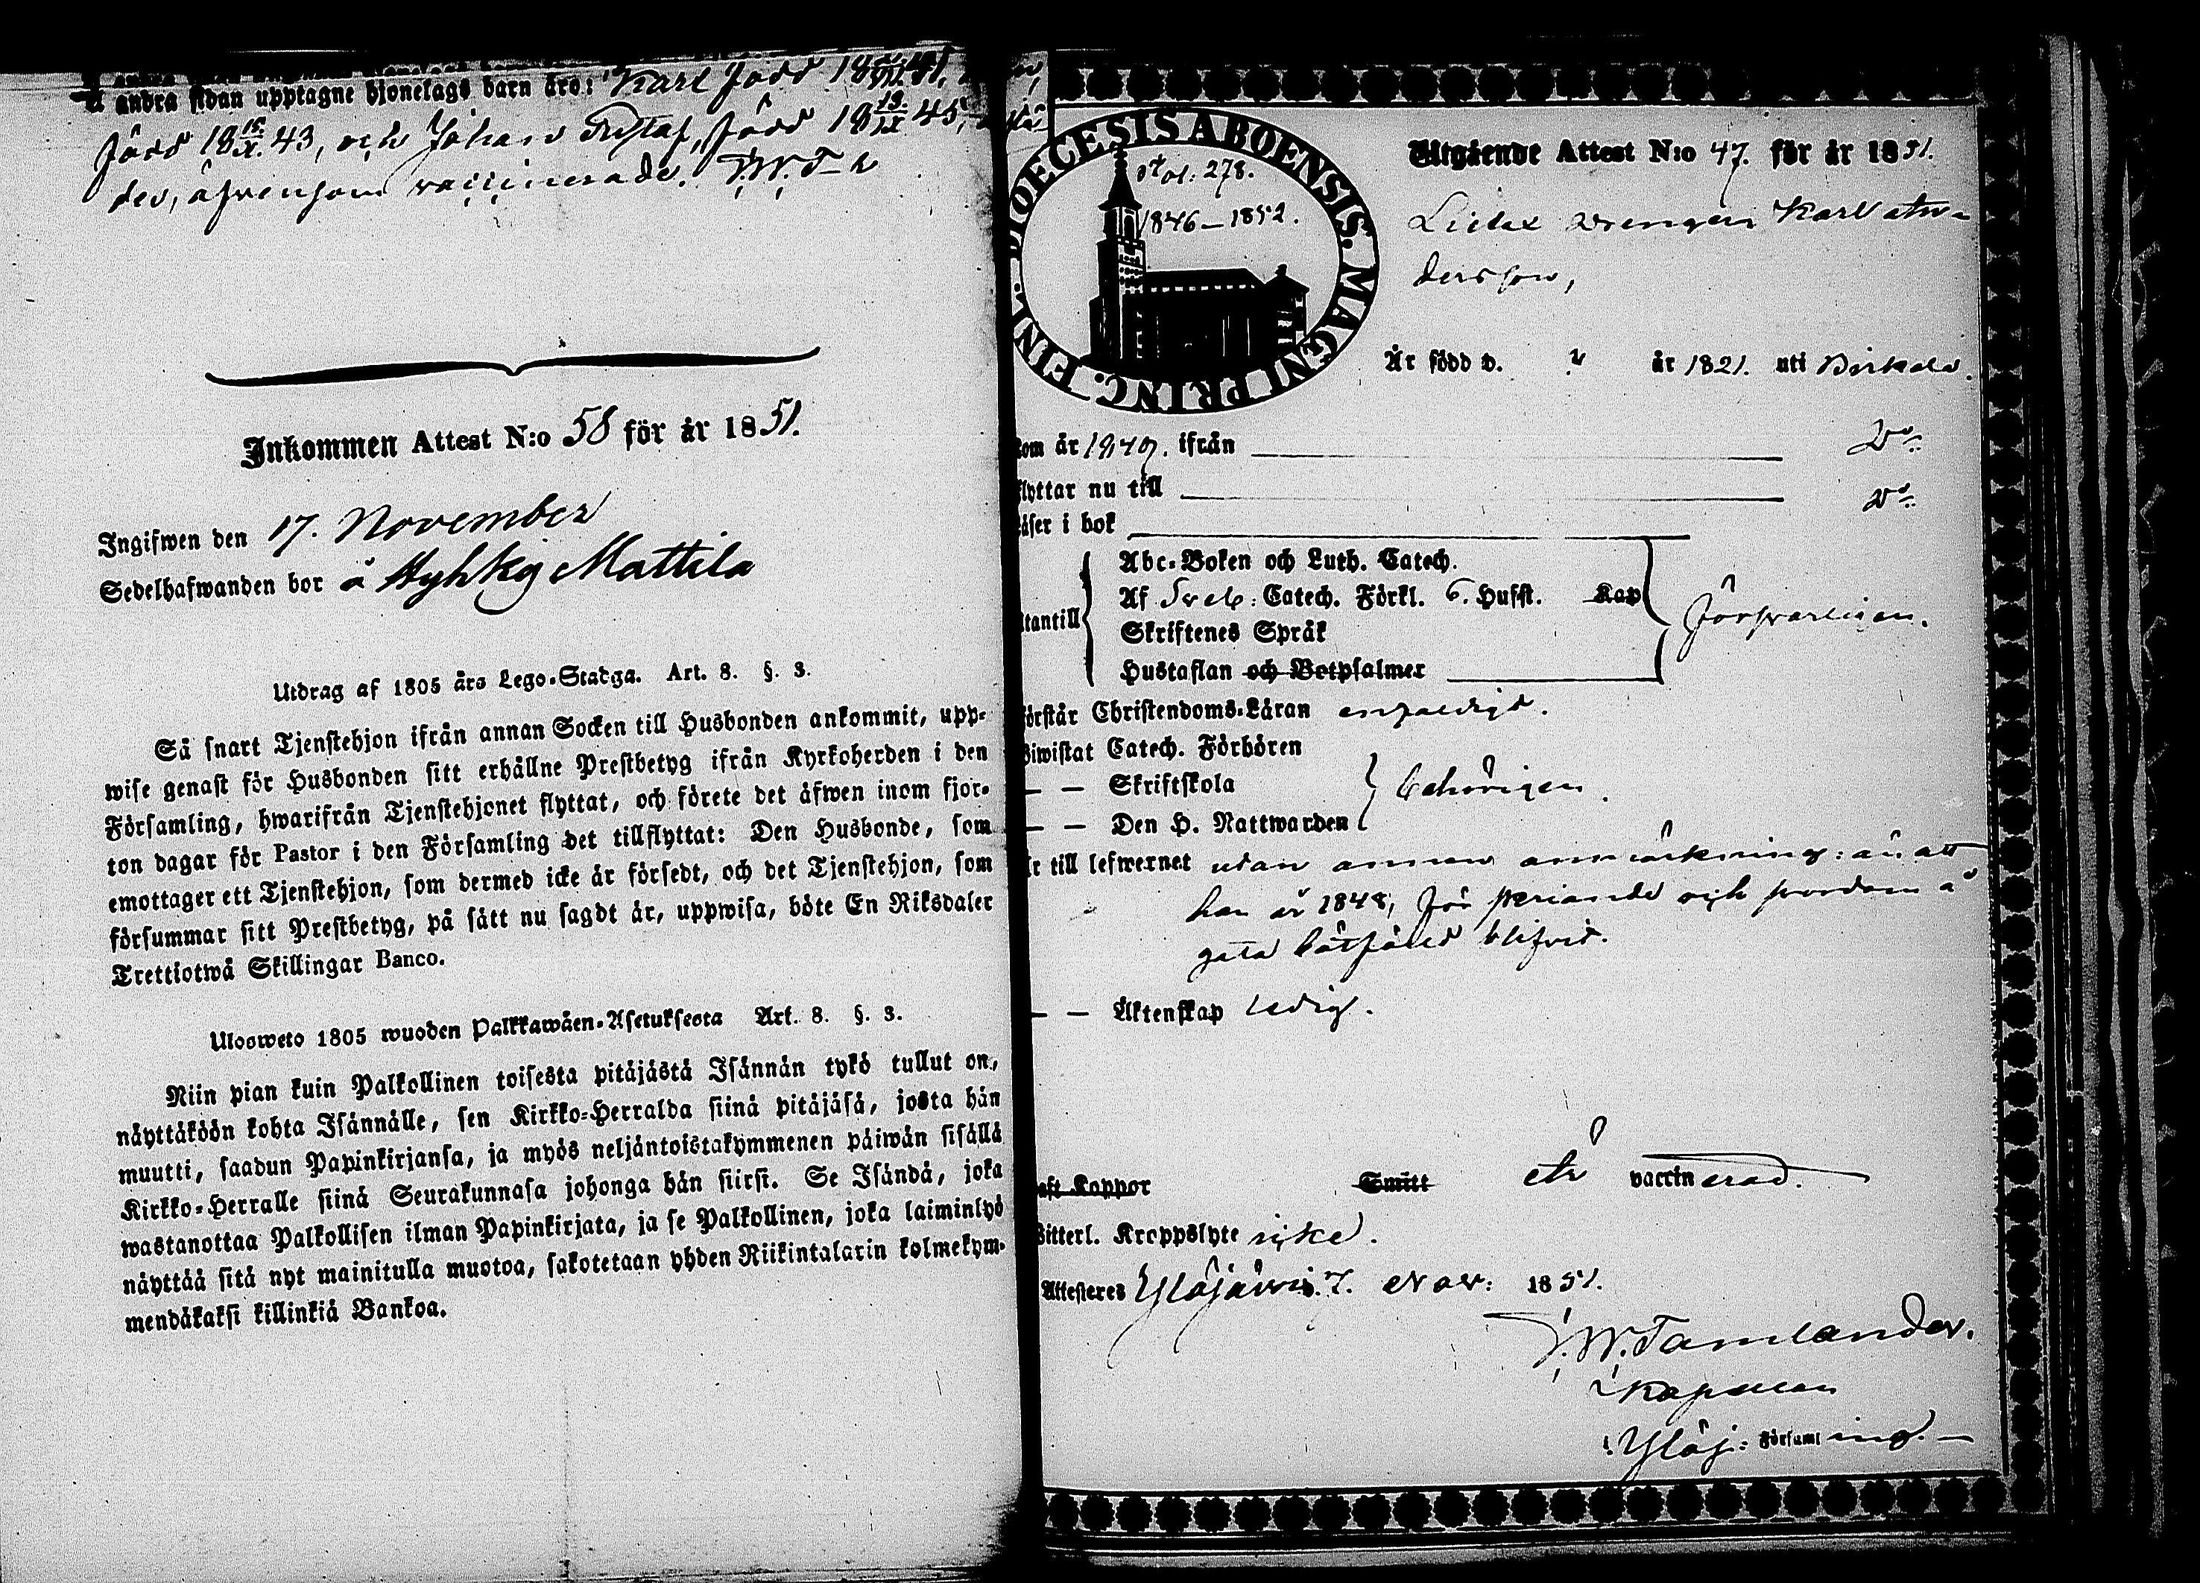 å andra sidan upptagne hjonelags barn äro: Karl född 18
född 18 43, och Johan Gustaf, född 18 45,
der, äfvensom vaccinerade.
Inkommen Attest N:o 58 för år 1851.
Ingifwen den 17. November
Sedelhafwanden bor å Hyhky Mattila
Utdrag af 1805 års Lego-Stadga. Art. 8. §. 3.
Så snart Tjenstehjon ifrån annan Socken till Husbonden ankommit, upp-
wise genast för Husbonden sitt erhållne Prestbetyg ifrån Kyrkoherden i den
Församling, hwarifrån Tjenstehjonet flyttat, och förete det äfwen inom fjor-
ton dagar för Pastor i den Församling det tillflyttat: Den Husbonde, som
emottager ett Tjenstehjon, som dermed icke är försedt, och det Tjenstehjon, som
försummar sitt Prestbetyg, på sätt nu sagdt är, uppwisa, böte En Riksdaler
Trettiotwå Skillingar Banco.
Ulosweto 1805 wuoden Palkkawäen-Asetuksesta Art. 8. §. 3.
Niin pian kuin Palkollinen toisesta pitäjästä Isännän tykö tullut on,
näyttäköön kohta Isännälle, sen Kirkko-Herralda siinä pitäjäsä, josta hän
muutti, saadun Papinkirjansa, ja myös neljäntoistakymmenen päiwän sisällä
Kirkko-Herralle siinä Seurakunnasa johonga hän siirsi. Se Isändä, joka
wastanottaa Palkollisen ilman Papinkirjata, ja se Palkollinen, joka laiminlyö
näyttää sitä nyt mainitulla muotoa, sakotetaan yhden Riikintalarin kolmekym-
mendäkaksi killinkiä Bankoa.
DIOECESIS ABOENSIS. MAGNI PRINC. FINL.
fol: 278.
1846–1852.
Utgående Attest N:o 47. för år 1851.
drengen Karl An-
dersson,
Är född d. ? år 1821. uti Birkala.
kom år 1849. ifrån D:o
flyttar nu till D:o
läser i bok
Abc-Boken och Luth. Catech.
Af Sveb: Catech. Förkl. 6. Hufst. Kap
utantill
Skriftenes Språk
försvarligen.
Hustaflan och Botpsalmer
förstår Christendoms-Läran enfaldigt.
Biwistat Catech. Förhören
— — Skriftskola behörigen.
— — Den H. Nattwarden
är till lefwernet utan annan anmärkning: än att
han år 1848, för svärjande och svordom å
gata bötfäld blifvit.
— — Äktenskap ledig.
haft Koppor Smitt Är vaccinerad.
Witterl. Kroppslyte icke.
Attesteras Ylöjärvi. 7. Nov: 1851.
W. Tamlander.
Kapellan
i Ylöj: Församling. —